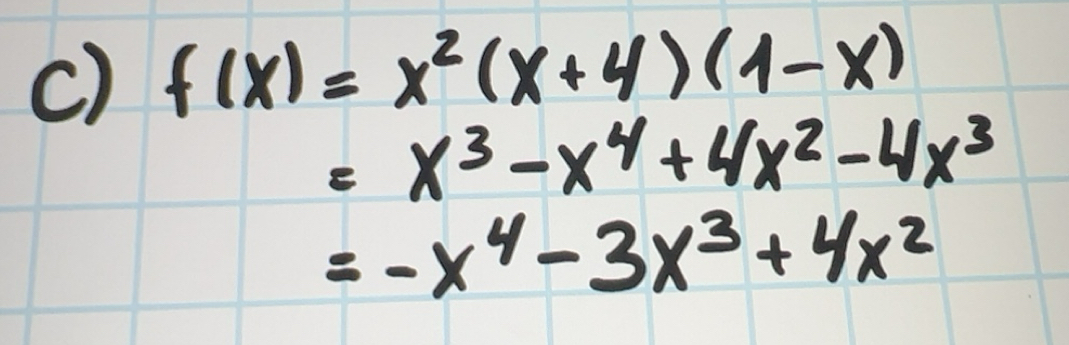 c) f(x) = x²(x+4)(1-x)
= x³-x⁴+4x²-4x³
= -x⁴-3x³+4x²